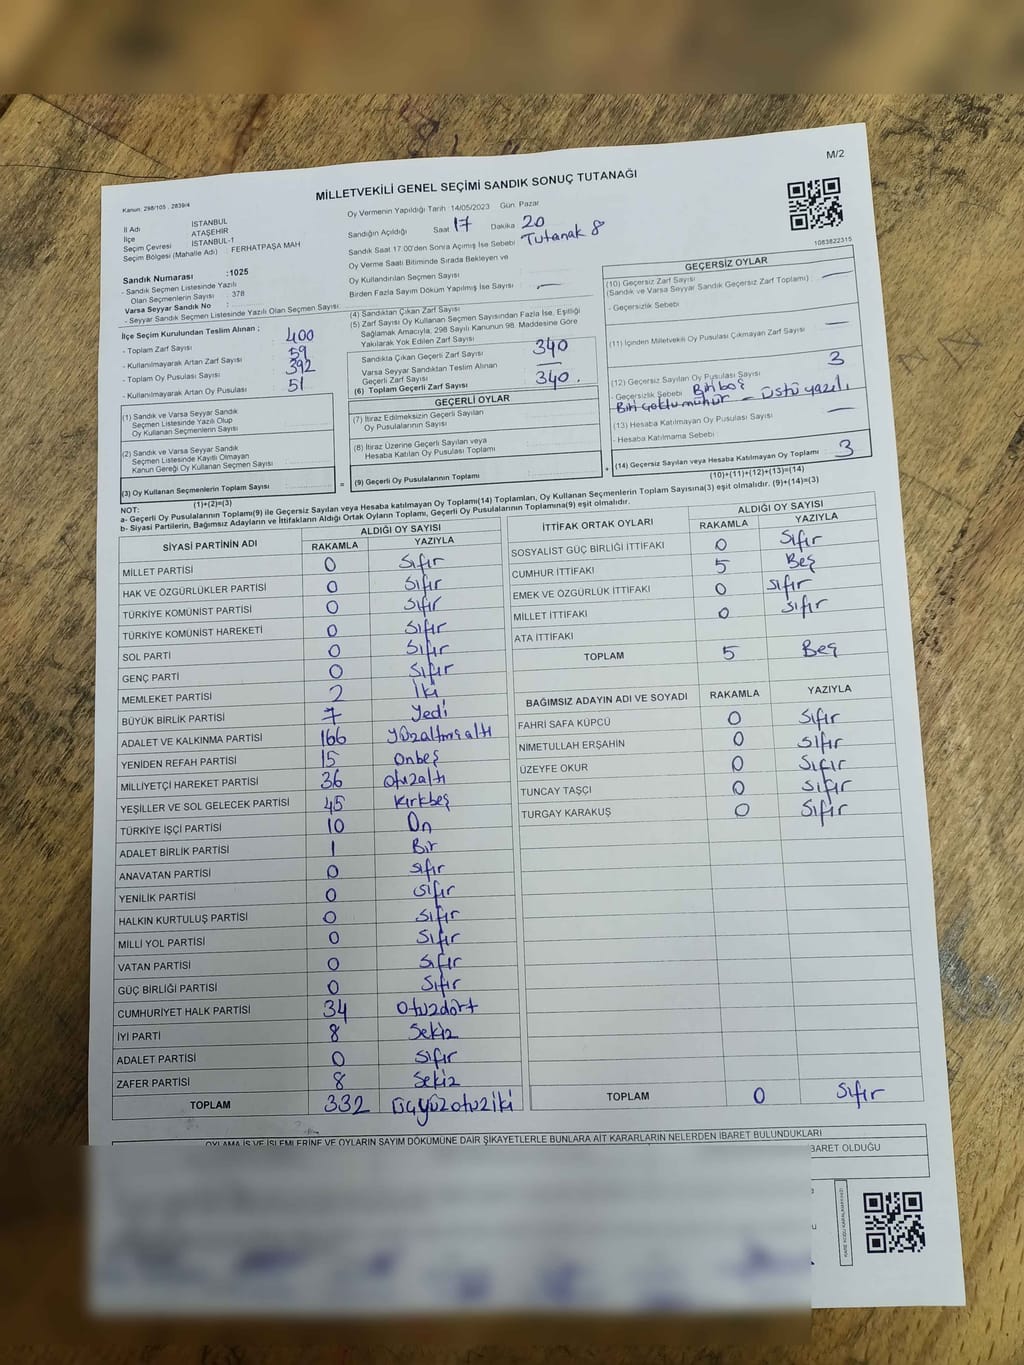 M/2
MİLLETVEKİLİ GENEL SEÇİMİ SANDIK SONUÇ TUTANAĞI
Kanun: 298/105 , 2839/4
İl Adı İSTANBUL
İlçe ATAŞEHİR
Seçim Çevresi İSTANBUL-1
Seçim Bölgesi (Mahalle Adı) : FERHATPAŞA MAH
Sandık Numarası :1025
- Sandık Seçmen Listesinde Yazılı
Olan Seçmenlerin Sayısı : 378
Varsa Seyyar Sandık No :
- Seyyar Sandık Seçmen Listesinde Yazılı Olan Seçmen Sayısı:
Oy Vermenin Yapıldığı Tarih :14/05/2023 Gün: Pazar
Sandığın Açıldığı Saat 17 Dakika 20
Sandık Saat 17:00'den Sonra Açılmış İse Sebebi Tutanak 8
Oy Verme Saati Bitiminde Sırada Bekleyen ve
Oy Kullandırılan Seçmen Sayısı
Birden Fazla Sayım Döküm Yapılmış İse Sayısı —
1083822315
İlçe Seçim Kurulundan Teslim Alınan ;
- Toplam Zarf Sayısı : 400
- Kullanılmayarak Artan Zarf Sayısı : 59
- Toplam Oy Pusulası Sayısı : 392
- Kullanılmayarak Artan Oy Pusulası : 51
(1) Sandık ve Varsa Seyyar Sandık
Seçmen Listesinde Yazılı Olup
Oy Kullanan Seçmenlerin Sayısı
(2) Sandık ve Varsa Seyyar Sandık
Seçmen Listesinde Kayıtlı Olmayan
Kanun Gereği Oy Kullanan Seçmen Sayısı
(3) Oy Kullanan Seçmenlerin Toplam Sayısı
(1)+(2)=(3)
(4) Sandıktan Çıkan Zarf Sayısı
(5) Zarf Sayısı Oy Kullanan Seçmen Sayısından Fazla İse, Eşitliği
Sağlamak Amacıyla, 298 Sayılı Kanunun 98. Maddesine Göre
Yakılarak Yok Edilen Zarf Sayısı
Sandıkta Çıkan Geçerli Zarf Sayısı 340
Varsa Seyyar Sandıktan Teslim Alınan
Geçerli Zarf Sayısı —
(6) Toplam Geçerli Zarf Sayısı 340.
GEÇERLİ OYLAR
(7) İtiraz Edilmeksizin Geçerli Sayılan
Oy Pusulalarının Sayısı
(8) İtiraz Üzerine Geçerli Sayılan veya
Hesaba Katılan Oy Pusulası Toplamı
= (9) Geçerli Oy Pusulalarının Toplamı +
GEÇERSİZ OYLAR
(10) Geçersiz Zarf Sayısı
(Sandık ve Varsa Seyyar Sandık Geçersiz Zarf Toplamı) : —
- Geçersizlik Sebebi
(11) İçinden Milletvekili Oy Pusulası Çıkmayan Zarf Sayısı —
(12) Geçersiz Sayılan Oy Pusulası Sayısı 3
- Geçersizlik Sebebi Biri boş
Biri çoklu mühür — üstü yazılı
(13) Hesaba Katılmayan Oy Pusulası Sayısı —
- Hesaba Katılmama Sebebi
(14) Geçersiz Sayılan veya Hesaba Katılmayan Oy Toplamı 3
(10)+(11)+(12)+(13)=(14)
NOT:
a- Geçerli Oy Pusulaları Toplamı(9) ile Geçersiz Sayılan veya Hesaba katılmayan Oy Toplamı(14) Toplamları, Oy Kullanan Seçmenlerin Toplam Sayısına(3) eşit olmalıdır. (9)+(14)=(3)
b- Siyasi Partilerin, Bağımsız Adayların ve İttifakların Aldığı Ortak Oyların Toplamı, Geçerli Oy Pusulalarının Toplamına(9) eşit olmalıdır.
SİYASİ PARTİNİN ADI ALDIĞI OY SAYISI
RAKAMLA YAZIYLA
MİLLET PARTİSİ 0 Sıfır
HAK VE ÖZGÜRLÜKLER PARTİSİ 0 Sıfır
TÜRKİYE KOMÜNİST PARTİSİ 0 Sıfır
TÜRKİYE KOMÜNİST HAREKETİ 0 Sıfır
SOL PARTİ 0 Sıfır
GENÇ PARTİ 0 Sıfır
MEMLEKET PARTİSİ 2 İki
BÜYÜK BİRLİK PARTİSİ 7 Yedi
ADALET VE KALKINMA PARTİSİ 166 Yüzaltmışaltı
YENİDEN REFAH PARTİSİ 15 Onbeş
MİLLİYETÇİ HAREKET PARTİSİ 36 Otuzaltı
YEŞİLLER VE SOL GELECEK PARTİSİ 45 Kırkbeş
TÜRKİYE İŞÇİ PARTİSİ 10 On
ADALET BİRLİK PARTİSİ 1 Bir
ANAVATAN PARTİSİ 0 sıfır
YENİLİK PARTİSİ 0 Sıfır
HALKIN KURTULUŞ PARTİSİ 0 Sıfır
MİLLİ YOL PARTİSİ 0 Sıfır
VATAN PARTİSİ 0 Sıfır
GÜÇ BİRLİĞİ PARTİSİ 0 Sıfır
CUMHURİYET HALK PARTİSİ 34 Otuzdört
İYİ PARTİ 8 Sekiz
ADALET PARTİSİ 0 Sıfır
ZAFER PARTİSİ 8 Sekiz
TOPLAM 332 Üçyüzotuziki
İTTİFAK ORTAK OYLARI ALDIĞI OY SAYISI
RAKAMLA YAZIYLA
SOSYALİST GÜÇ BİRLİĞİ İTTİFAKI 0 Sıfır
CUMHUR İTTİFAKI 5 Beş
EMEK VE ÖZGÜRLÜK İTTİFAKI 0 Sıfır
MİLLET İTTİFAKI 0 Sıfır
ATA İTTİFAKI
TOPLAM 5 Beş
BAĞIMSIZ ADAYIN ADI VE SOYADI RAKAMLA YAZIYLA
FAHRİ SAFA KÜPCÜ 0 Sıfır
NİMETULLAH ERŞAHİN 0 Sıfır
ÜZEYFE OKUR 0 Sıfır
TUNCAY TAŞÇI 0 Sıfır
TURGAY KARAKUŞ 0 Sıfır
TOPLAM 0 Sıfır
OYLAMA İŞ VE İŞLEMLERİNE VE OYLARIN SAYIM DÖKÜMÜNE DAİR ŞİKAYETLERLE BUNLARA AİT KARARLARIN NELERDEN İBARET BULUNDUKLARI
BARET OLDUĞU